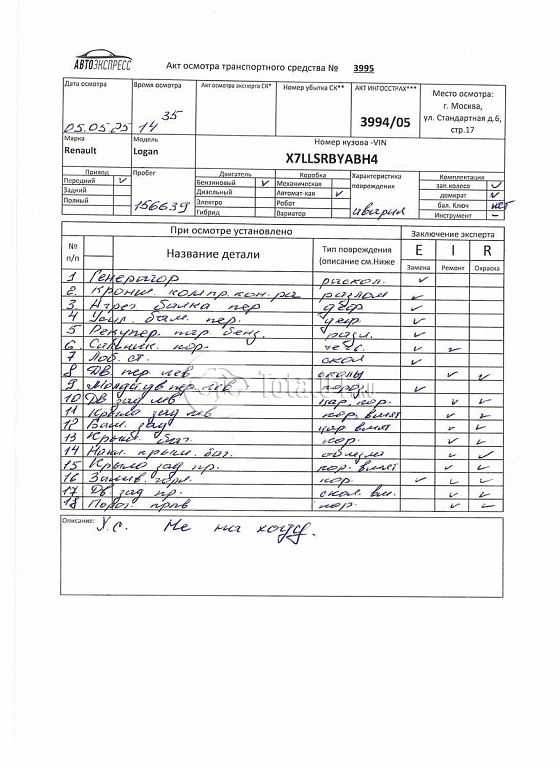 АВТОЭКСПРЕСС
Акт осмотра транспортного средства № 3995
Дата осмотра Время осмотра Акт осмотра эксперта СК* Номер убытка СК** АКТ ИНГОССТРАХ*** Место осмотра:
г. Москва,
ул. Стандартная д.6,
стр.17
05.05.25 14 35 3994/05
Марка Модель Номер кузова -VIN
Renault Logan X7LLSRBYABH4
Привод Пробег Двигатель Коробка Характеристика повреждения Комплектация
Передний ✓ Бензиновый ✓ Механическая зап.колесо ✓
Задний Дизельный Автомат-кая ✓ домкрат ✓
Полный 156639 Электро Робот авария бал. Ключ нет
Гибрид Вариатор Инструмент –
При осмотре установлено Заключение эксперта
№ п/п Название детали Тип повреждения (описание см.Ниже E I R
Замена Ремонт Окраска
1 Генератор раскол. ✓
2. Кроншт. компр. кон-ра разлом ✓
3. Агрег. балка пер деф ✓
4 Усил. бам. пер. деф. ✓
5 Рекупер. пар. бенз. разл. ✓
6. Сальник кор. течь ✓ ✓
7 Лоб. ст. скол ✓
8 Дв пер лев сколы ✓ ✓
9. Молд дв пер лев ✓
10 Дв зад лев цар, кор. ✓ ✓
11 Крыло зад лев кор, вмят ✓ ✓
12 Бам. зад цар вмят ✓ ✓
13 Крыш. баг. кор. ✓ ✓
14 Накл. крыш. баг. облезла ✓ ✓
15 Крыло зад пр. кор. вмят ✓ ✓
16 кор. ✓ ✓ ✓
17 Дв. зад пр. скол. вм. ✓ ✓
18 Порог прав кор. ✓ ✓
Описание: У.с. Не на ходу.